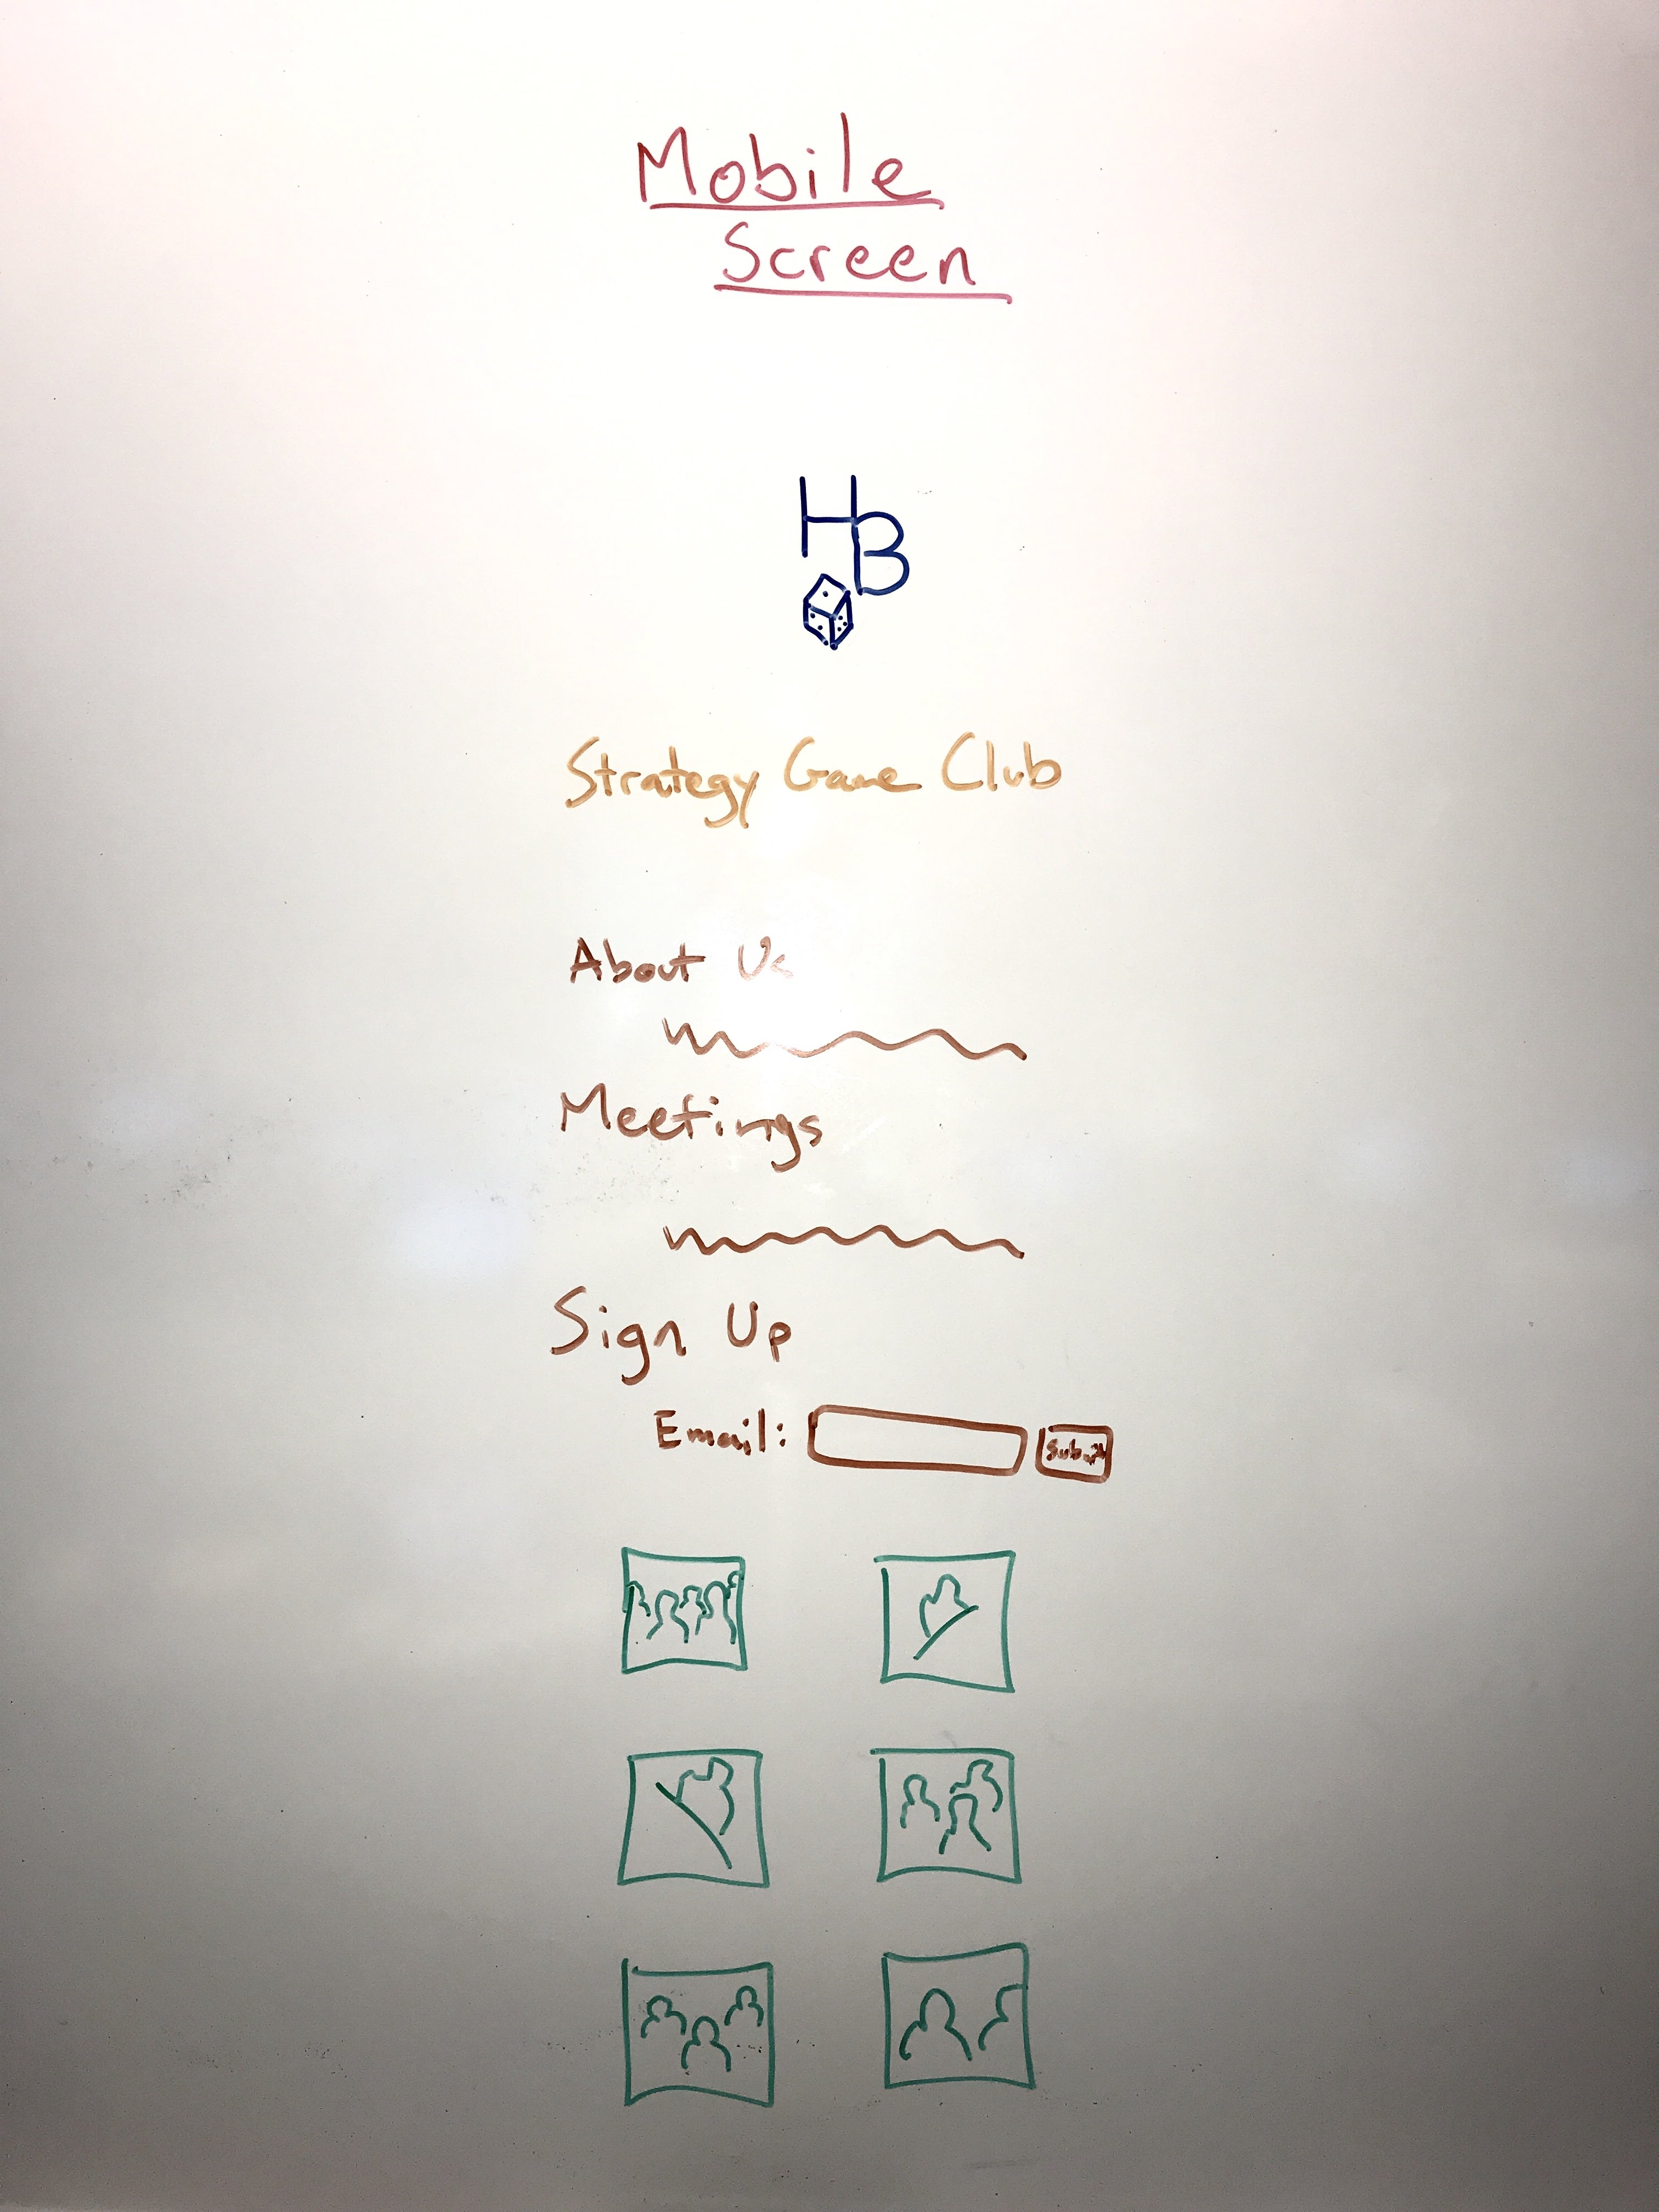 Mobile
Screen
HB
Strategy Game Club
About Us
Meetings
Sign Up
Email: Submit